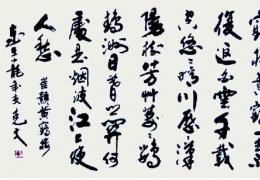 復返白雲千載
空悠悠晴川歷歷漢
陽樹芳草萋萋鸚
鵡洲日暮鄉關何
處是烟波江上使
人愁
崔顥黃鶴樓